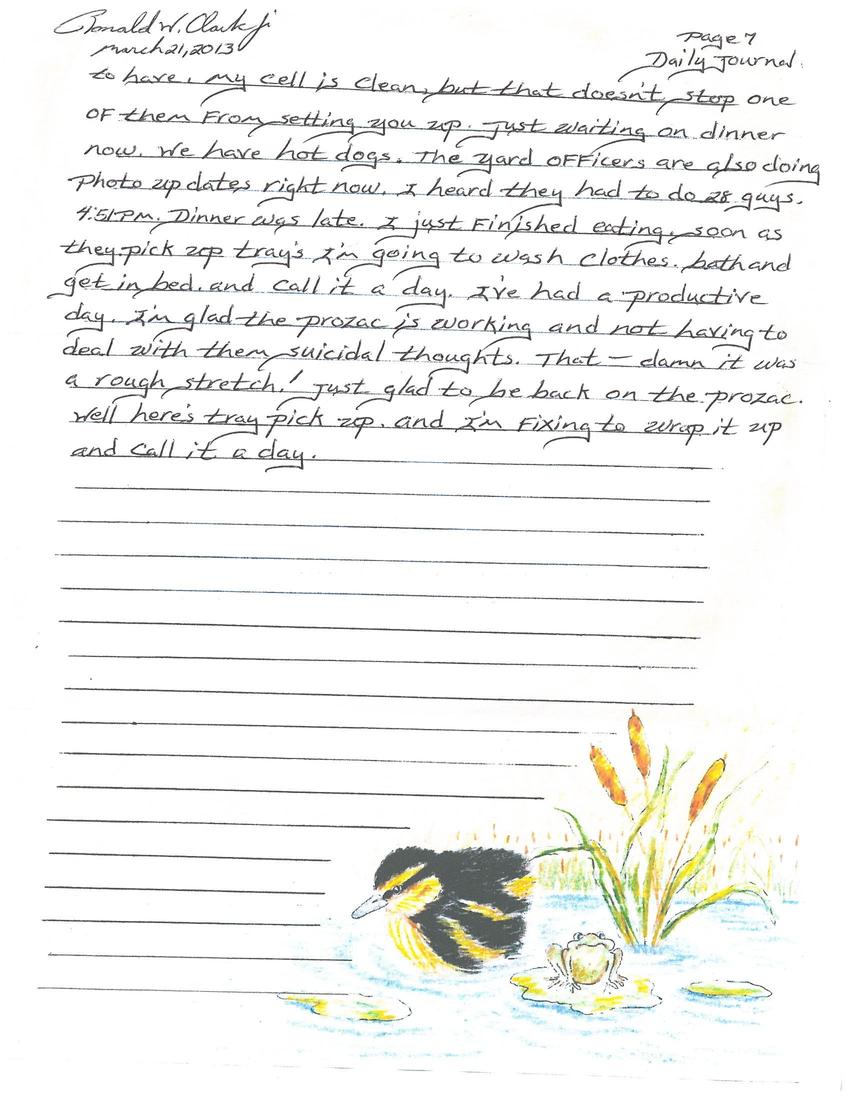 Ronald W. Clark Jr
March 21, 2013
Page 7
Daily Journal.
to have. my cell is clean, but that doesn't stop one
of them From setting you up. Just waiting on dinner
now. We have hot dogs. The yard oFFicers are also doing
Photo up dates right now. I heard they had to do 28 guys.
4:51 PM. Dinner was late. I just Finished eating, soon as
they pick up tray's I'm going to wash clothes. bath and
get in bed. and call it a day. I've had a productive
day. I'm glad the prozac is working and not having to
deal with them suicidal thoughts. That — damn it was
a rough stretch! Just glad to be back on the prozac.
Well here's tray pick up. and I'm Fixing to wrap it up
and call it a day.